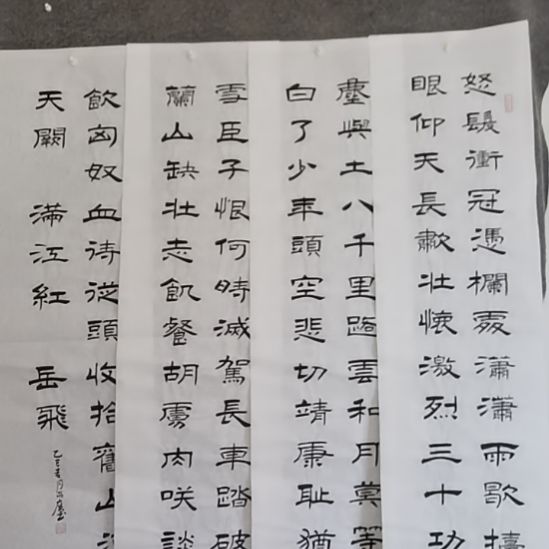 怒髮衝冠憑欄處瀟瀟雨歇
眼仰天長歗壯懷激烈三十功
塵與土八千里路雲和月莫等
白了少年頭空悲切靖康恥猶
雪臣子恨何時滅駕長車踏破
蘭山缺壯志飢餐胡虜肉咲談
飲匈奴血待從頭收拾舊山
天闕 滿江紅 岳飛